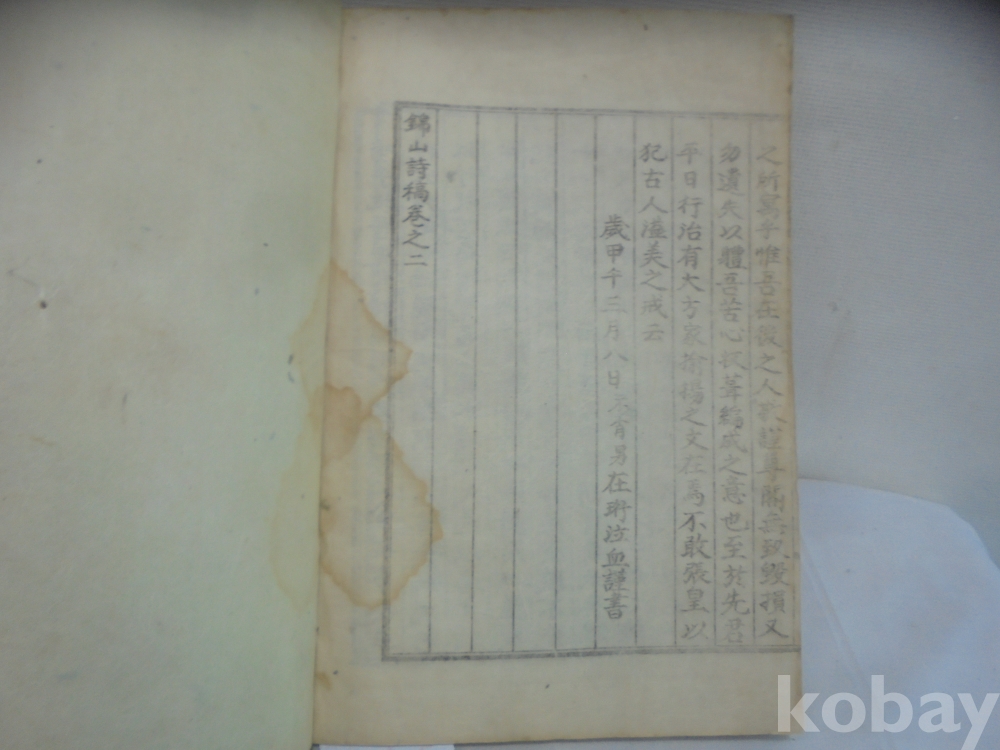 之所寓乎惟吾在後之人敬謹尊閣無致毀損又
勿遺失以體吾苦心掇葺編成之意也至於先君
平日行治有大方家揄揚之文在焉不敢張皇以
犯古人溢美之戒云
歲甲午三月八日不肖男在珩泣血謹書
錦山詩稿卷之二
kobay